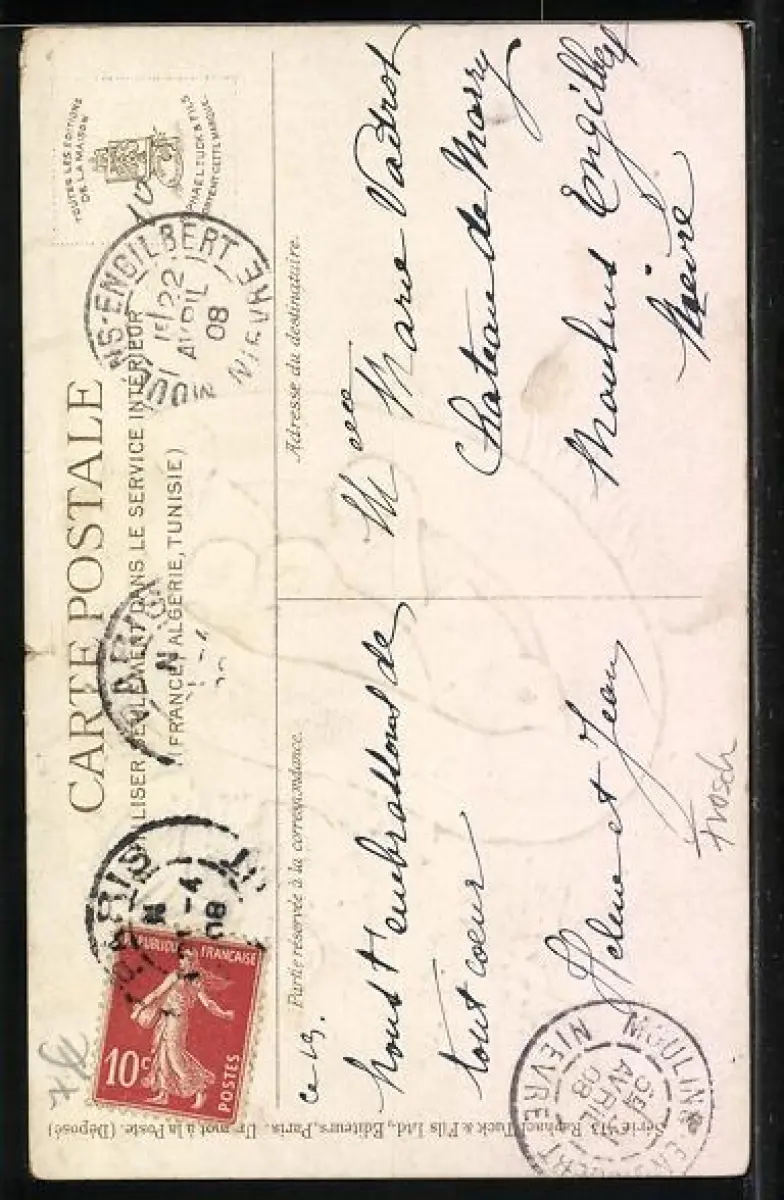 CARTE POSTALE
LISER SEULEMENT DANS LE SERVICE INTÉRIEUR
(FRANCE, ALGERIE, TUNISIE)
TOUTES LES EDITIONS
DE LA MAISON
RAPHAEL TUCK & FILS
PORTENT CETTE MARQUE
10
MOULINS-ENGILBERT NIEVRE
15 22
AVRIL
08
PARIS
PARIS
-4
08
REPUBLIQUE FRANÇAISE
10c
POSTES
Partie réservée à la correspondance.
ce 19.
nous t'embrassons de
tout coeur
Helene et Jean
Adresse du destinataire.
Mlle Marie Vadrot
Chateau de Marry
Moulins Engilbert
Nièvre
Frosch
MOULINS-ENGILBERT
NIEVRE
AVRIL
08
Série 913 Raphael Tuck & Fils Ltd., Editeurs, Paris. Un mot à la Poste. (Déposé)